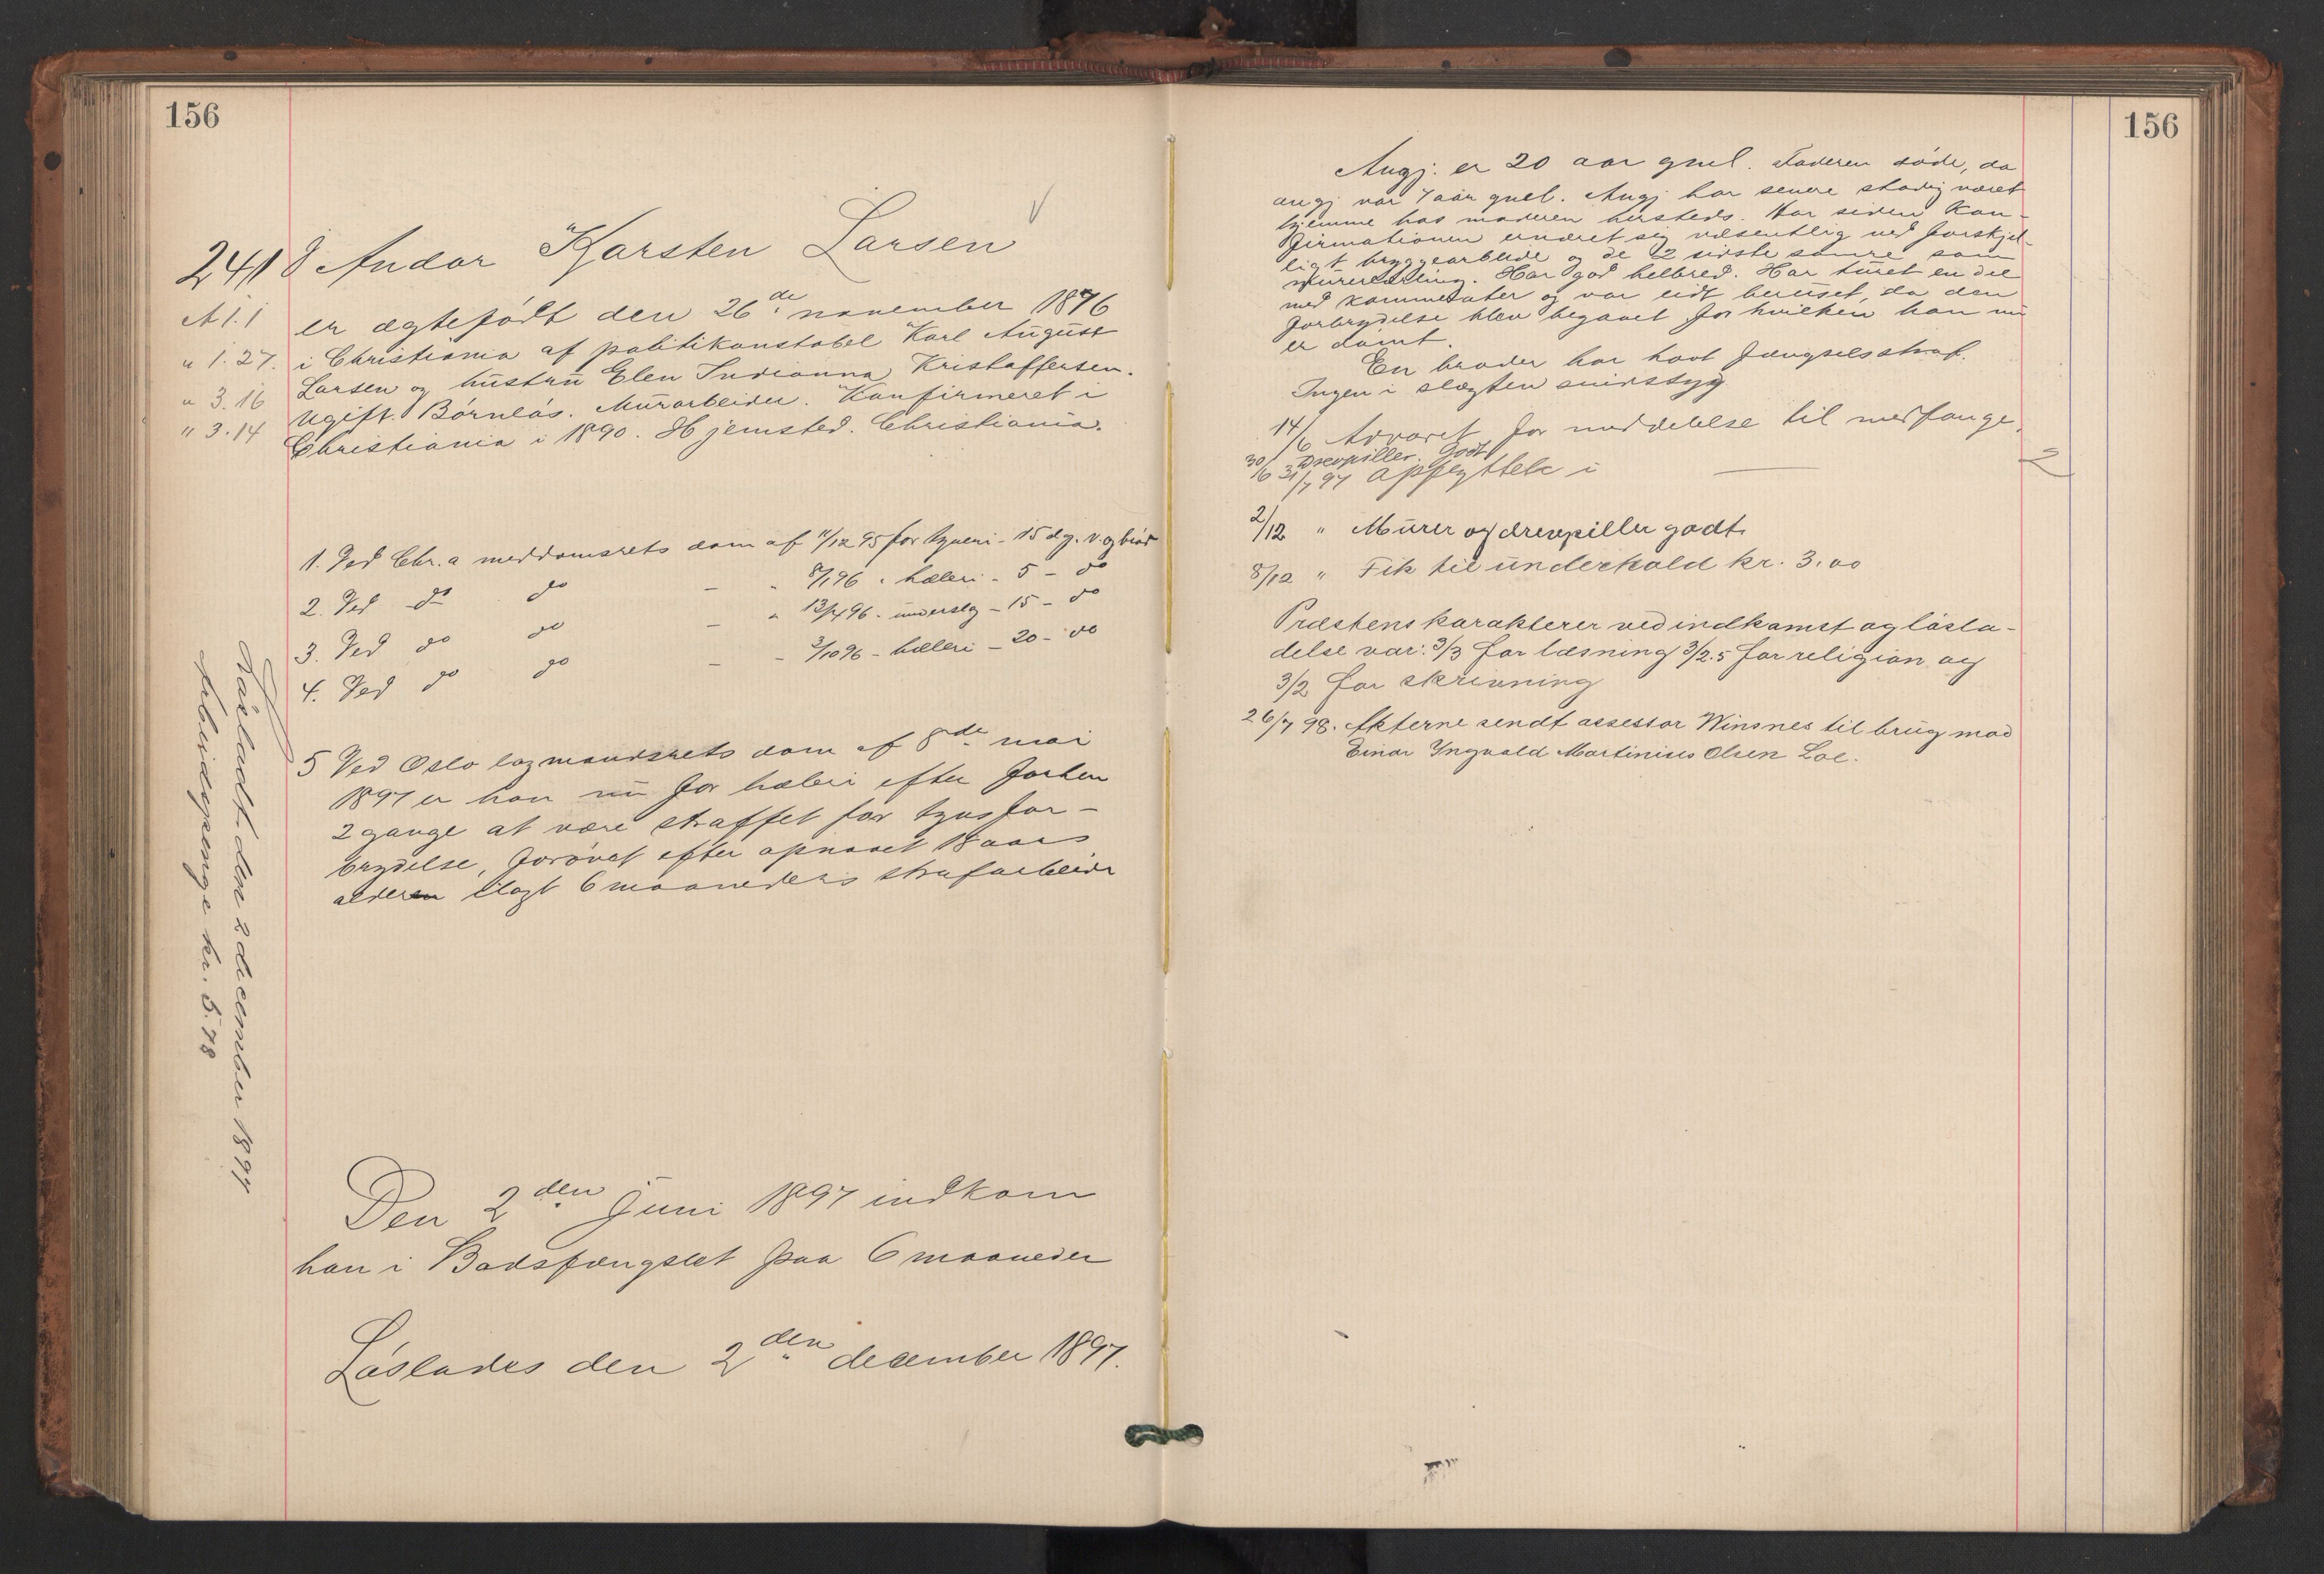 156
2411 Andor Karsten Larsen
A 1.1
" 1.27.
" 3.16
" 3.14
er ægtefødt den 26de november 1876
i Christiania af politikonstabel Karl August
Larsen og hustru Elen Indianna Kristoffersen.
Ugift. Børnløs. Murarbeider. Konfirmeret i
Christiania i 1890. Hjemsted. Christiania.
1. Ved Chr.a meddomsrets dom af 11/12 95 for tyveri - 15 dg. v. og brød
2. Ved do do - " 8/1 96 " hæleri - 5 - do
3. Ved do do - " 13/4 96 - underslg - 15 - do
4. Ved do do - - 3/10 96 - hæleri - 20 - do
5 Ved Oslo lagmandsrets dom af 8de mai
1897 er han nu for hæleri efter forhen
2 gange at være straffet for tyvsfor-
brydelse, forøvet efter opnaaet 18 aars
alderen ilagt 6 maaneders strafarbeide
Den 2den Juni 1897 indkom
han i Bodsfængslet paa 6 maaneder
Løslades den 2den december 1897.
Løsladt den 2 december 1897
Arbeidspenge kr. 5.78
156
Angj. er 20 aar gml. Faderen døde, da
angj var 7 aar gml. Angj har senere stadig været
hjemme hos moderen hersteds. Har siden Kon-
firmationen ernæret sig væsentlig ved forskjel-
ligt bryggearbeide og de 2 sidste somre som
murerlærling. Har god helbred. Har turet en del
med kammerater og var lidt beruset, da den
forbrydelse blev begaaet for hvilken han nu
er dømt.
En broder har havt fængselsstraf.
Ingen i slægten sindssyg
14/6 Advaret for meddelelse til medfange.
30/6 Drevpiller. Godt
31/7 97 Opflyttet i — 2
2/12 " Murer og drevpiller godt.
8/12 " Fik til underhold kr. 3.00
Præstens karakterer ved indkomst og løsla-
delse var: 3/3 for læsning 3/2.5 for religion og
3/2 for skrivning
26/7 98. Akterne sendt assessor Winsnes til brug mod
Einar Yngvald Martinius Olsen Loe.